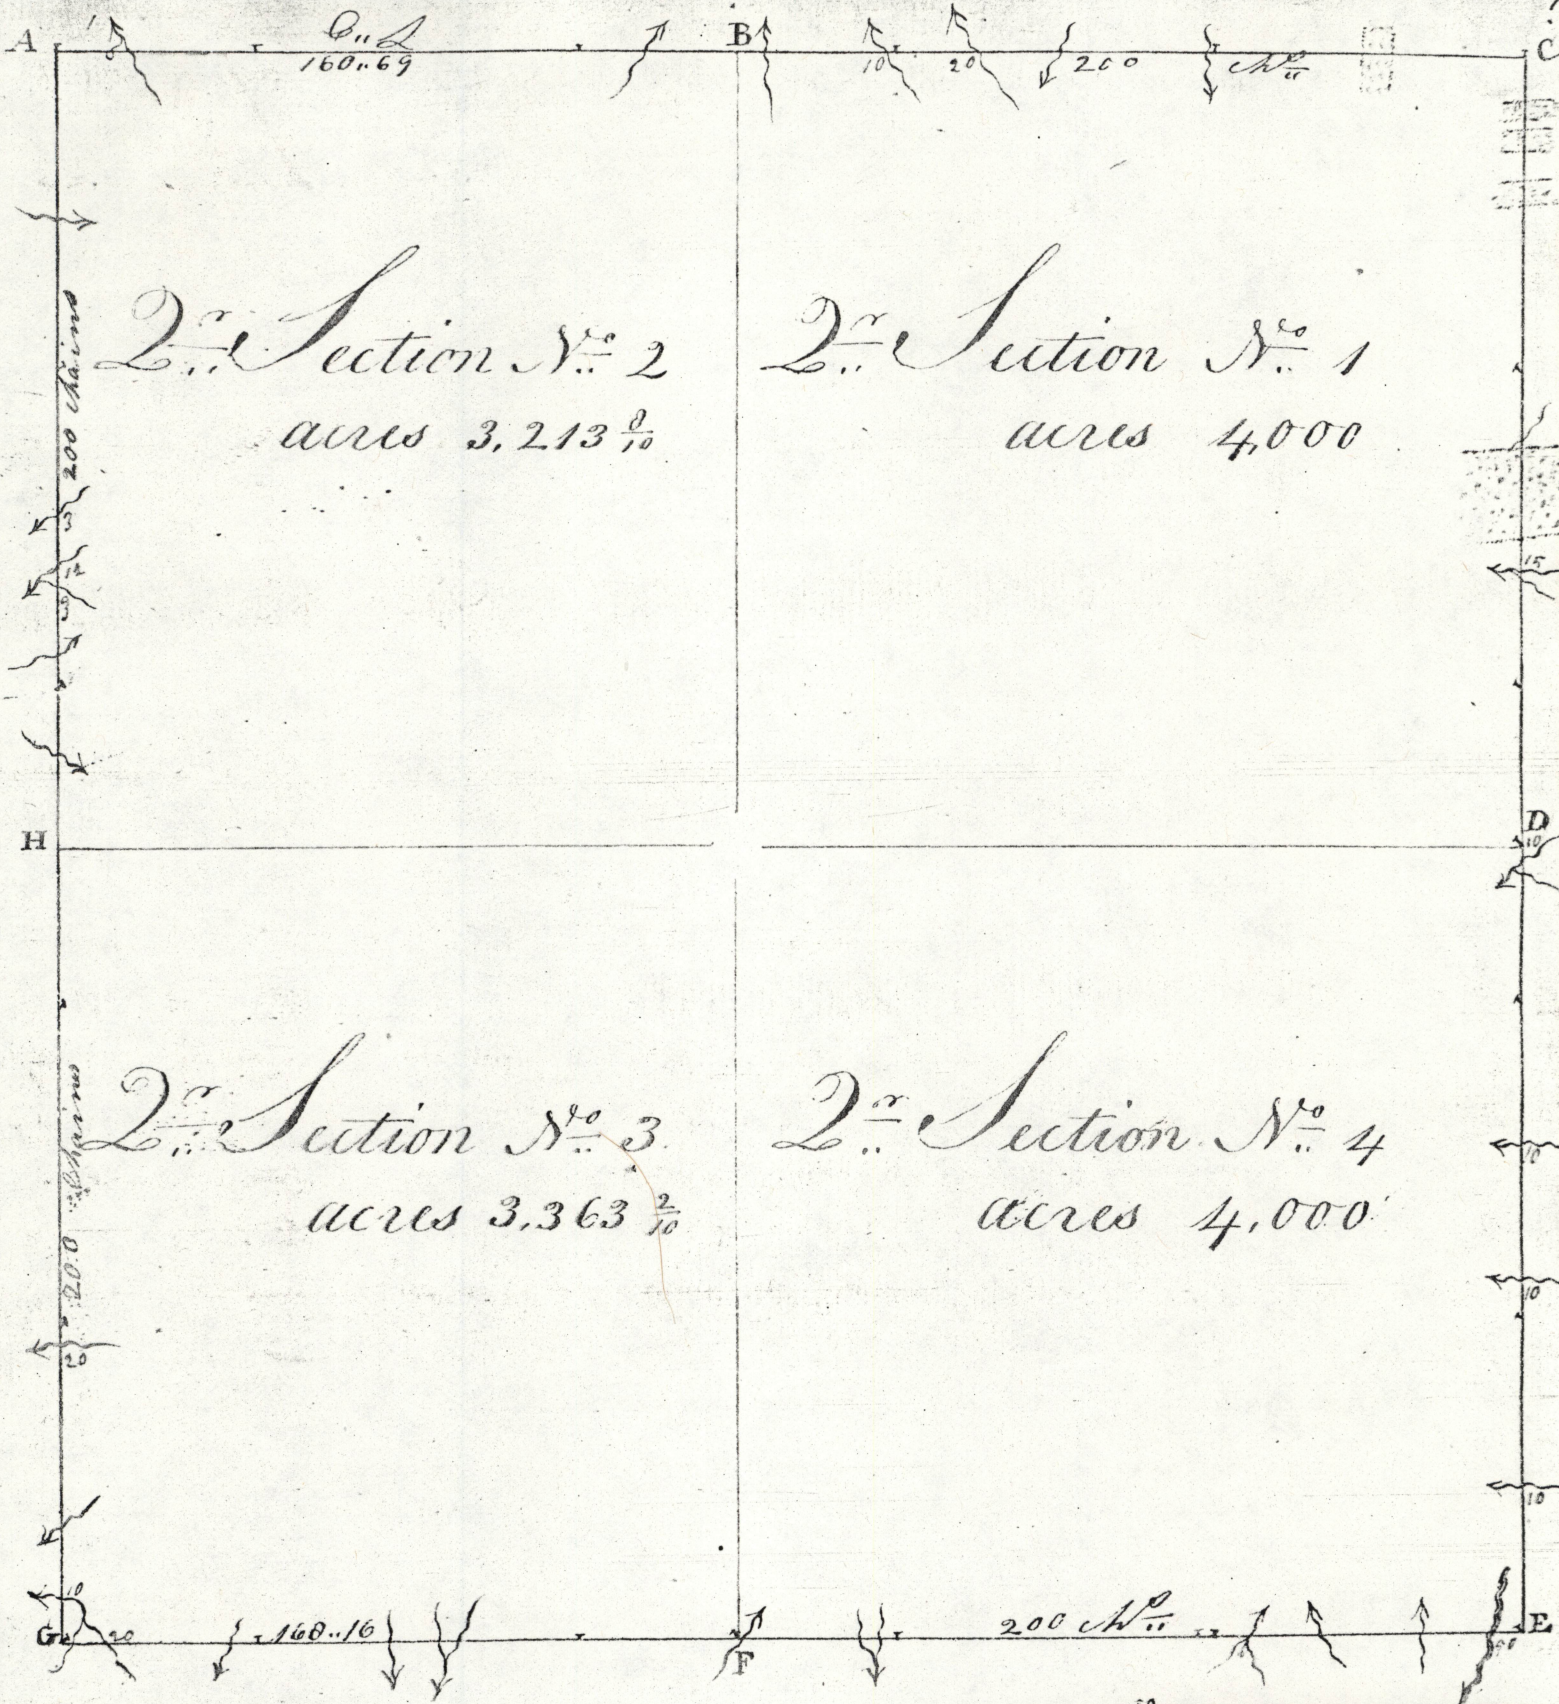 A
B
C
C.. L
160..69
10
20
200 Chs
200 Chains
2r.. Section No.. 2
acres 3,213 8/10
2r.. Section No.. 1
acres 4,000
3
12
15
H
D
10
2r.. Section No.. 3
acres 3,363 2/10
2r.. Section No.. 4
acres 4,000
10
200
20
10
10
10
G
20
168..16
F
200 Chs
E